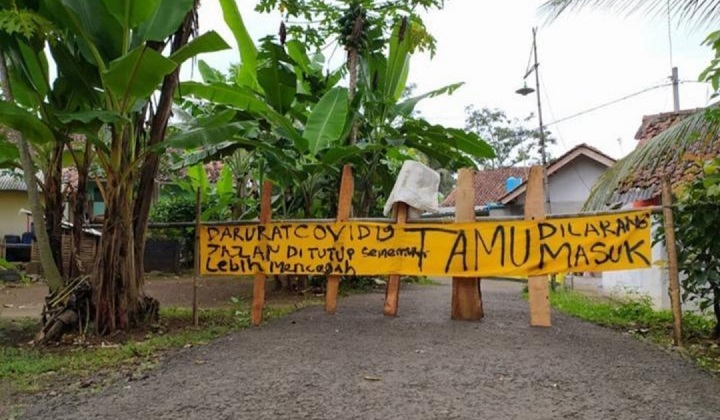 DARURAT COVID 19
JALAN DI TUTUP
Lebih Mencegah
TAMU
DILARANG
MASUK